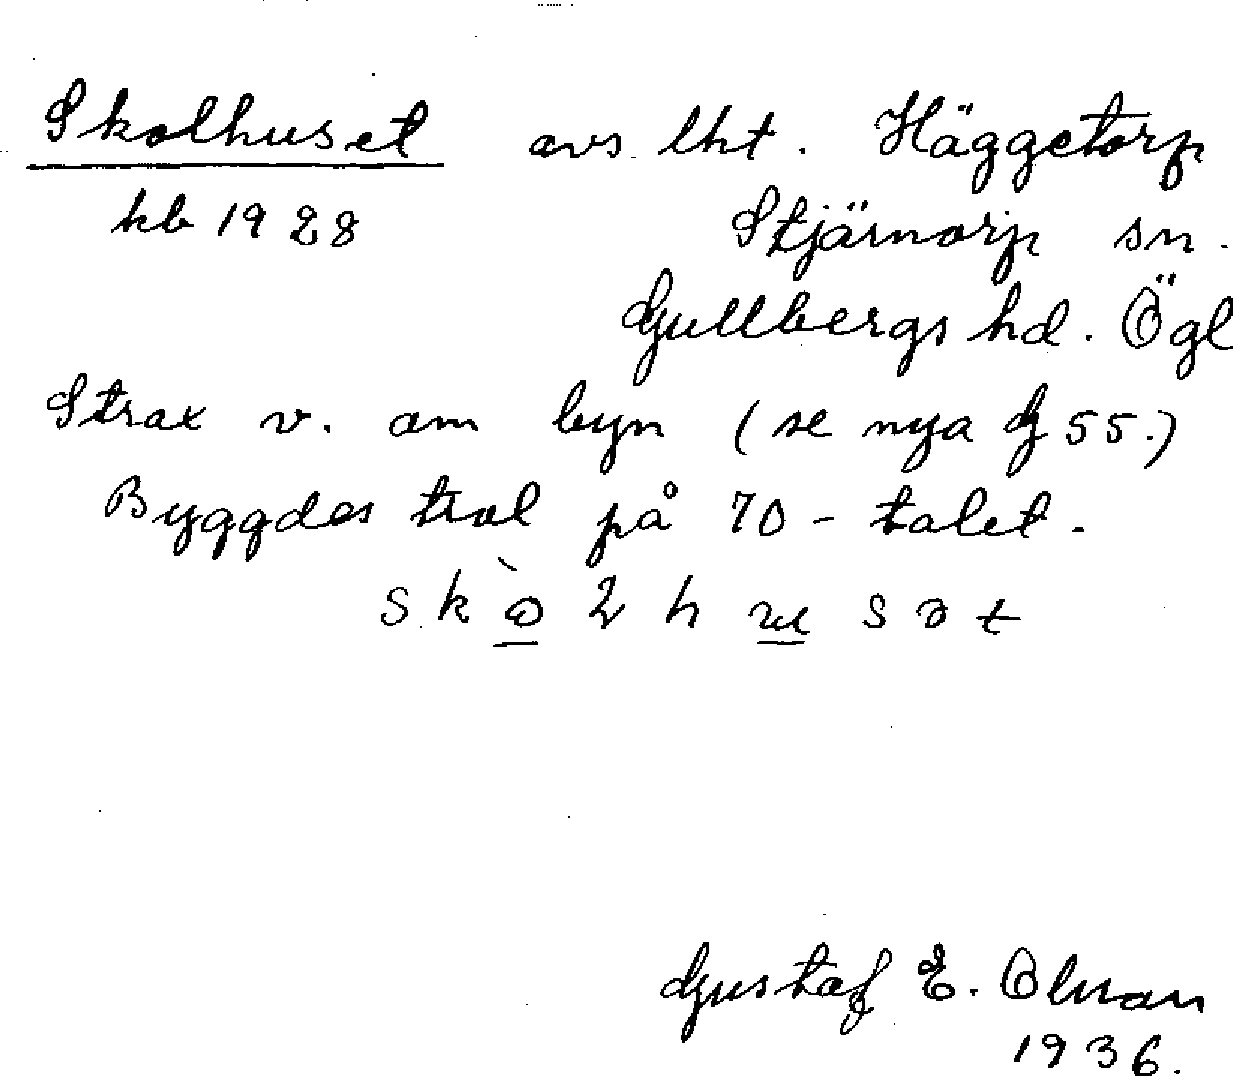 Skolhuset avs. lht. Häggetorp
kb 1928 Stjärnorp sn.
Gullbergs hd. Ögl
Strax v. om byn (se nya G 55.)
Byggdes trol på 70-talet.
Gustaf E. Olman
1936.